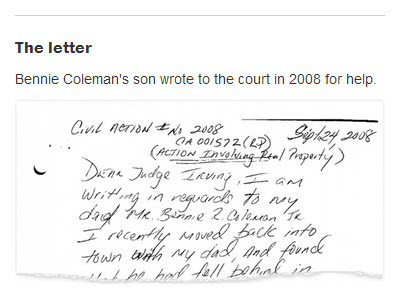 The letter
Bennie Coleman's son wrote to the court in 2008 for help.
Civil Action # No 2008
CA 001572 (RP)
Sept 24, 2008
(Action Involving Real Property)
Dear Judge Irving, I am
writting in reguards to my
dad Mr. Bennie R. Coleman Jr.
I recently moved back into
town with my dad, and found
he had fell behind in